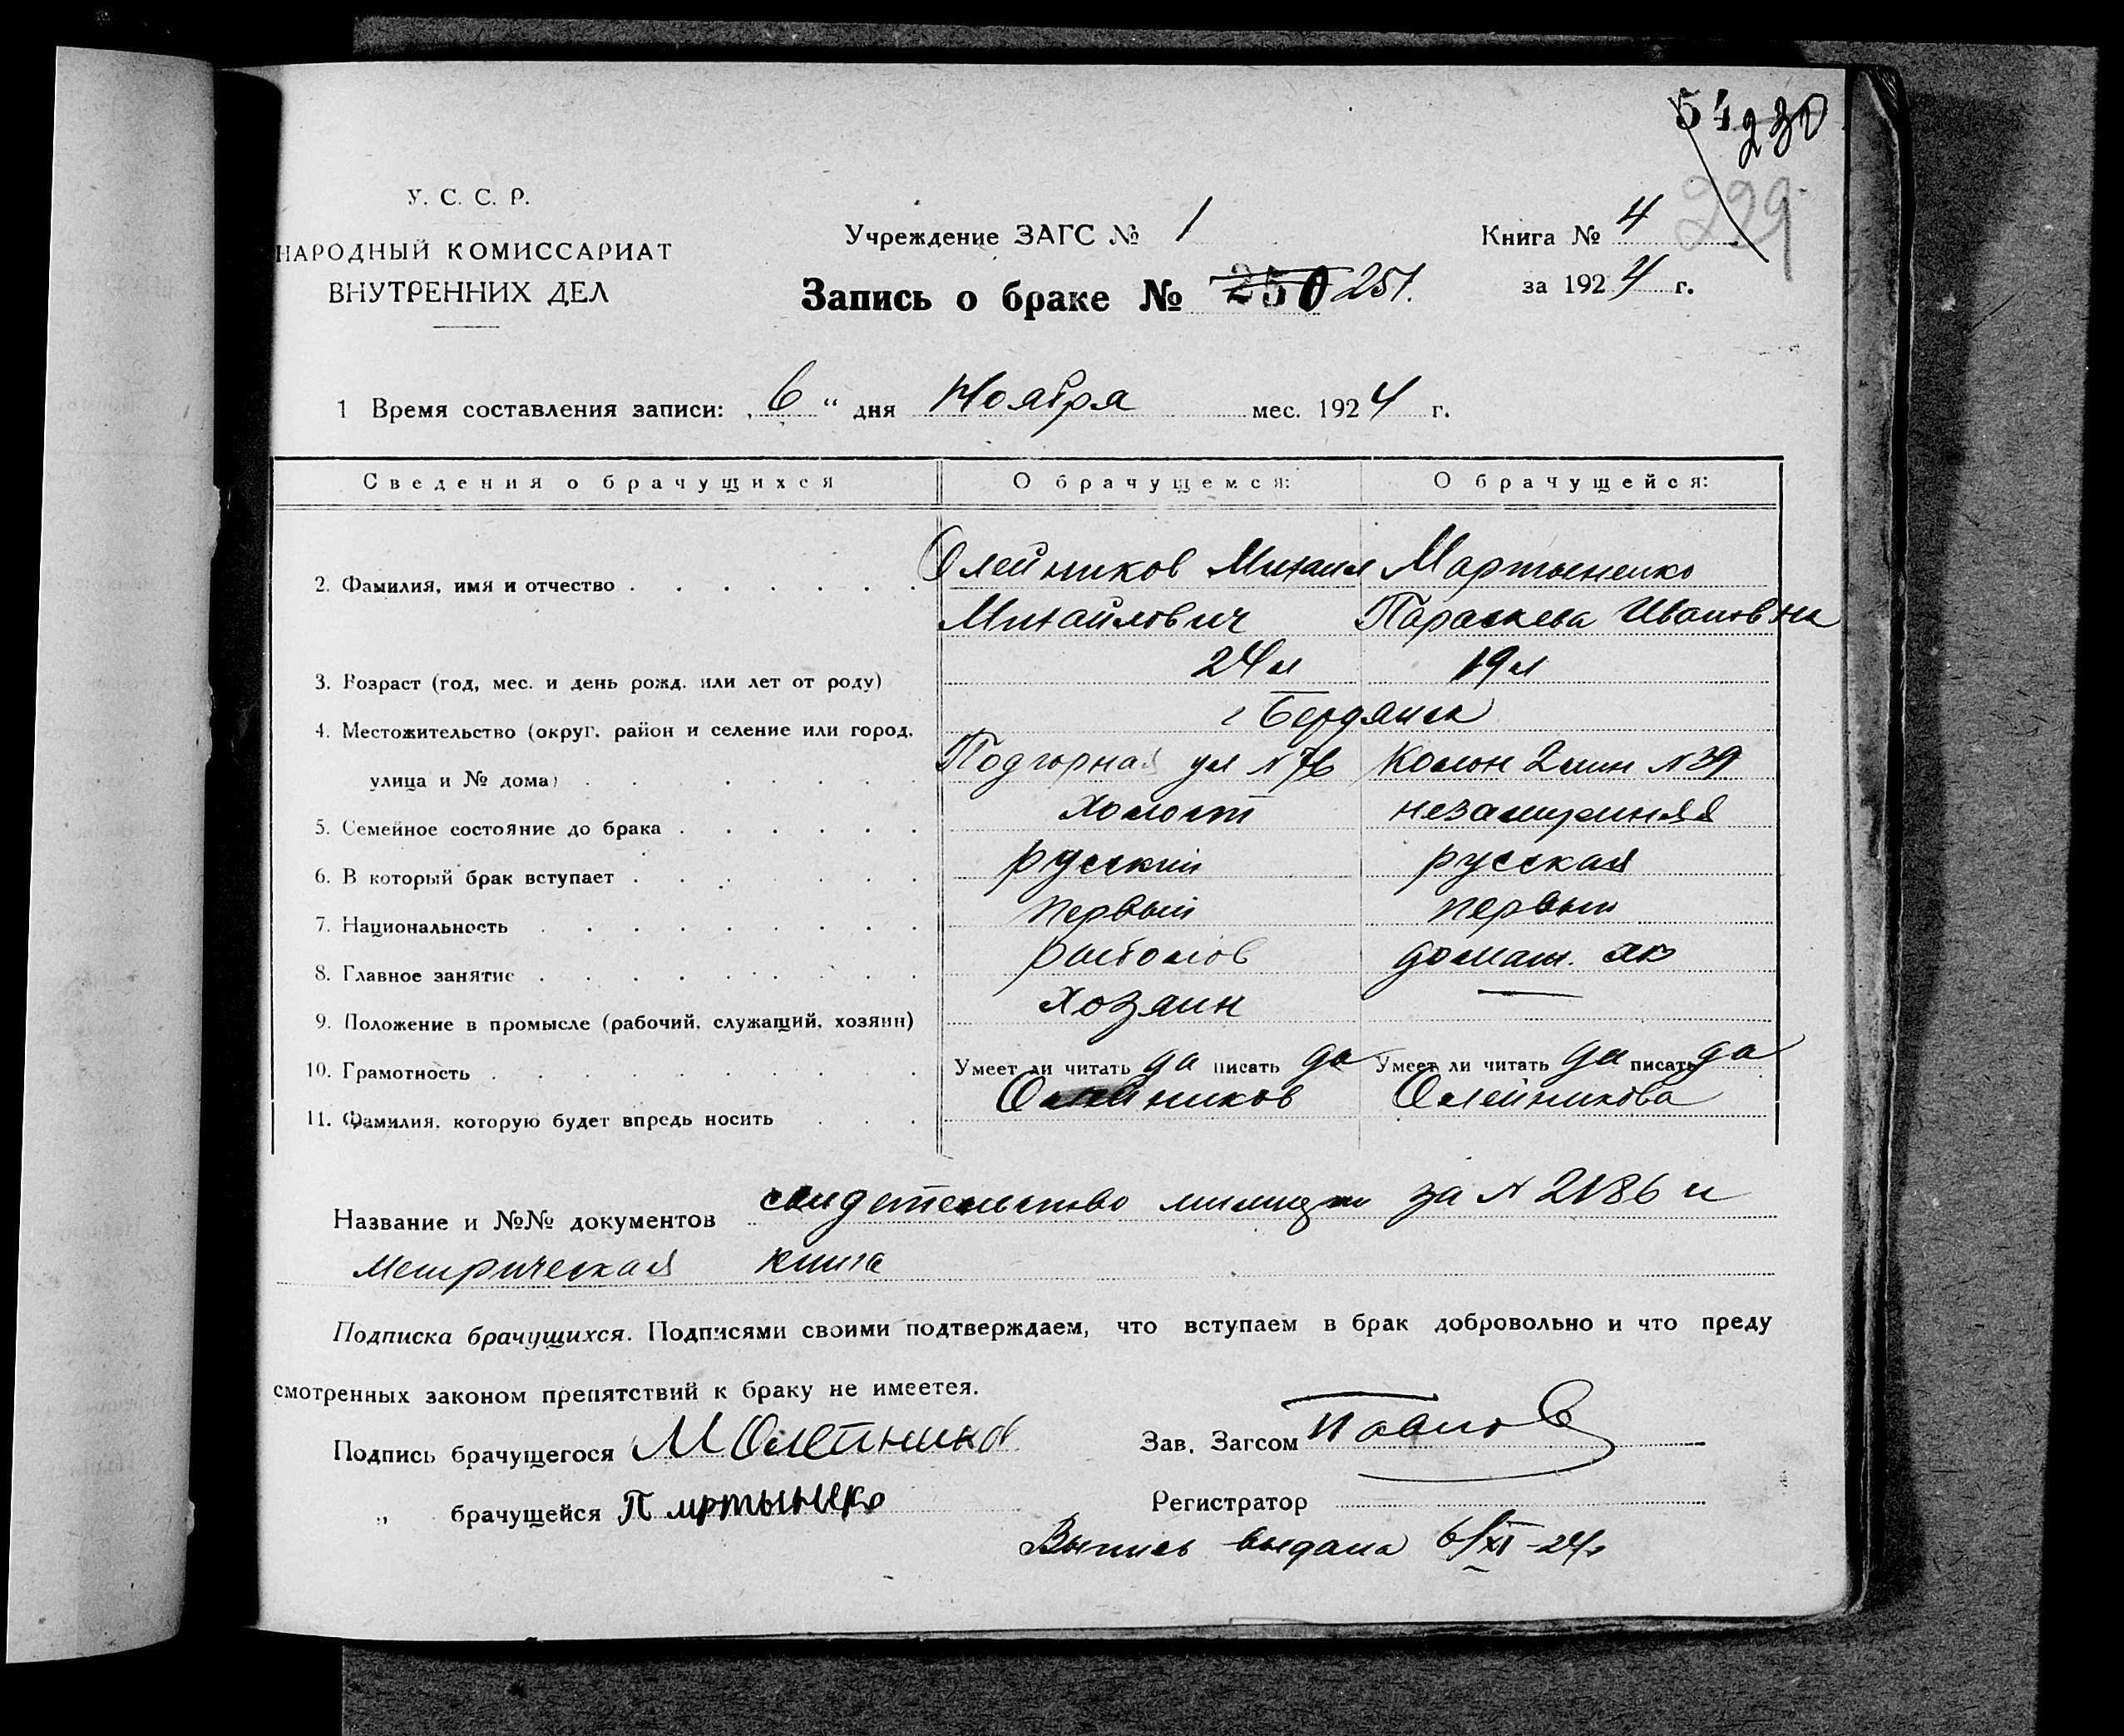 54 230
229
У. С. С. Р.
НАРОДНЫЙ КОМИССАРИАТ
ВНУТРЕННИХ ДЕЛ
Учреждение ЗАГС № 1
Книга № 4
Запись о браке № 250 251.
за 1924 г.
1 Время составления записи: „6" дня Ноября мес. 1924 г.
Сведения о брачущихся О брачущемся: О брачущейся:
2. Фамилия, имя и отчество Олейников Михаил Мартыненко
Михайлович Параскева Ивановна
3. Возраст (год, мес. и день рожд. или лет от роду) 24 л 19 л
4. Местожительство (округ, район и селение или город, г Бердянск
улица и № дома) Подгорная ул № 76 Колон 2 лин № 39
5. Семейное состояние до брака холост незамужняя
6. В который брак вступает русский русская
7. Национальность первый первый
8. Главное занятие рыболов домаш. хоз
9. Положение в промысле (рабочий, служащий, хозяин) хозяин —
10. Грамотность Умеет ли читать да писать да Умеет ли читать да писать да
11. Фамилия, которую будет впредь носить Олейников Олейникова
Название и №№ документов свидетельство милиции за № 2186 и
метрическая книга
Подписка брачущихся. Подписями своими подтверждаем, что вступаем в брак добровольно и что преду
смотренных законом препятствий к браку не имеется.
Подпись брачущегося М Олейников Зав. Загсом Павлов
„ брачущейся П мртынеко Регистратор
Выпись выдана 6/XI-24г